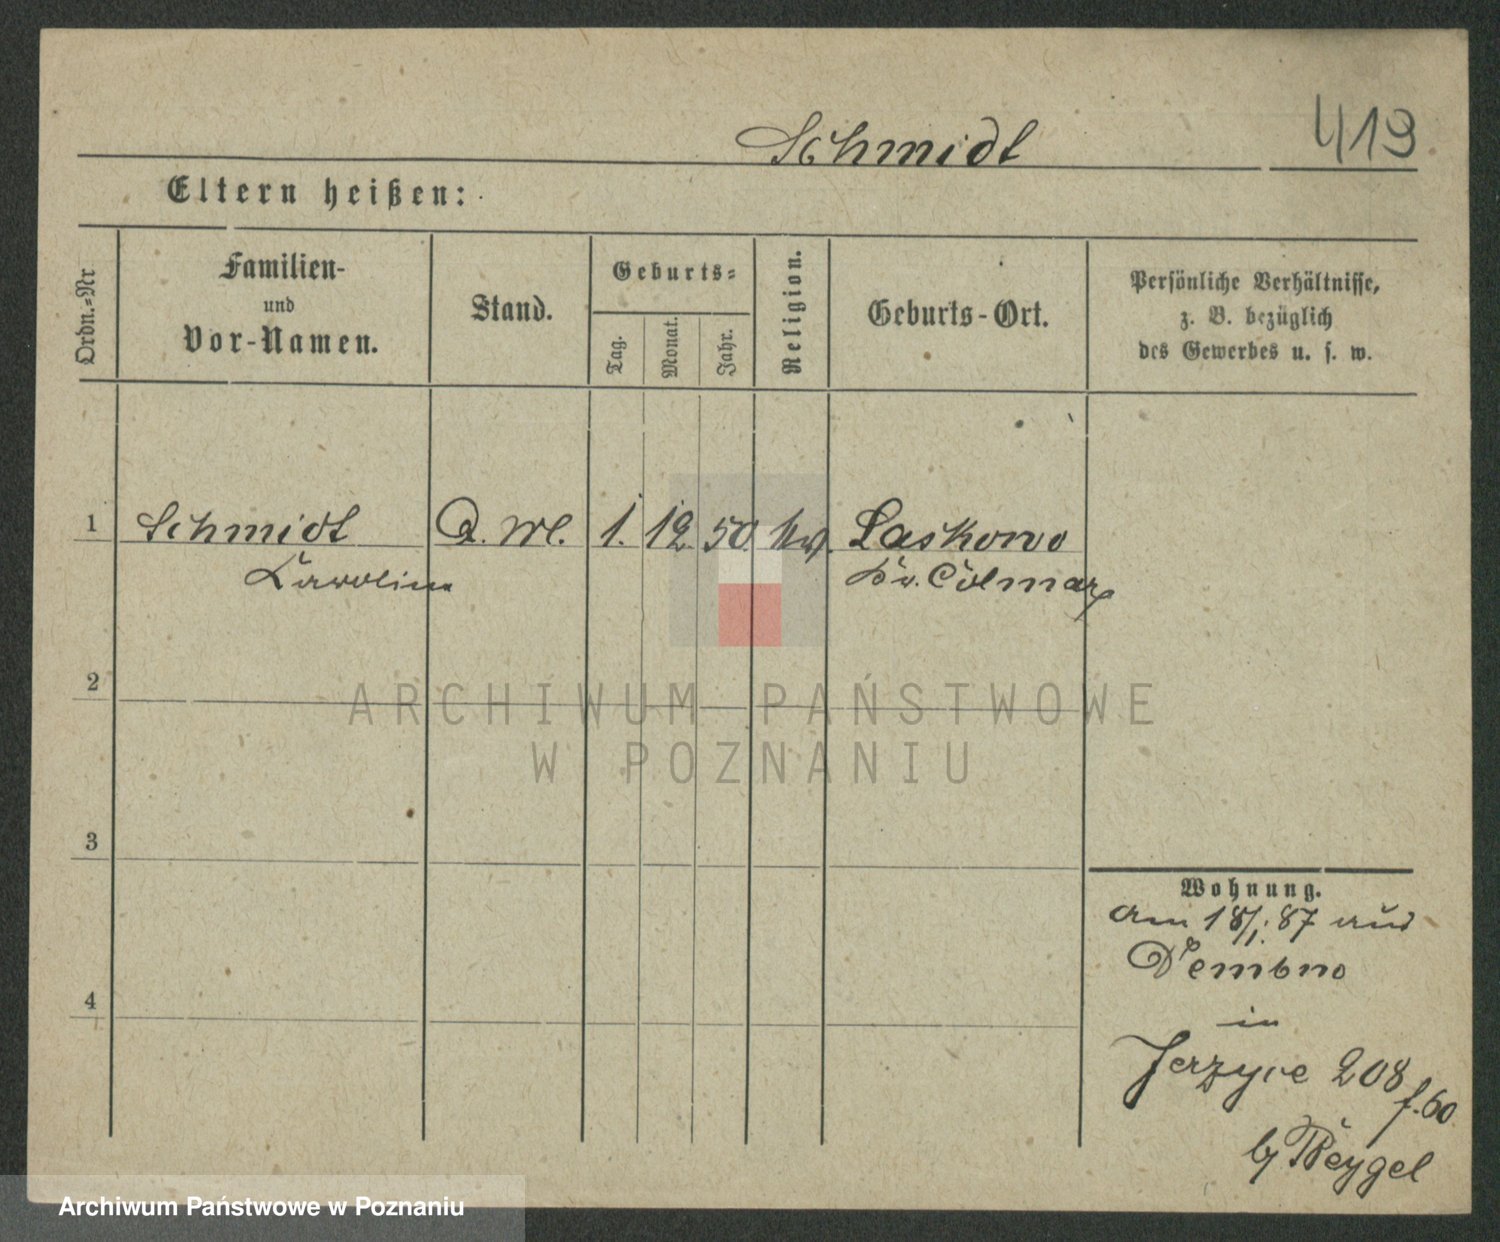 Schmidt
419
Eltern heißen:
Ordn.-Nr
Familien-
und
Vor-Namen.
Stand.
Geburts-
Tag.
Monat.
Jahr.
Religion.
Geburts-Ort.
Persönliche Verhältnisse,
z. B. bezüglich
des Gewerbes u. s. w.
1 Schmidt 1. 12. 50. Laskowo
Carolina Colmar
2
ARCHIWUM PAŃSTWOWE
W POZNANIU
3
4
Wohnung.
am 18/1. 87 aus
Dembno
in
Jerzyce 208
f. 60
Archiwum Państwowe w Poznaniu